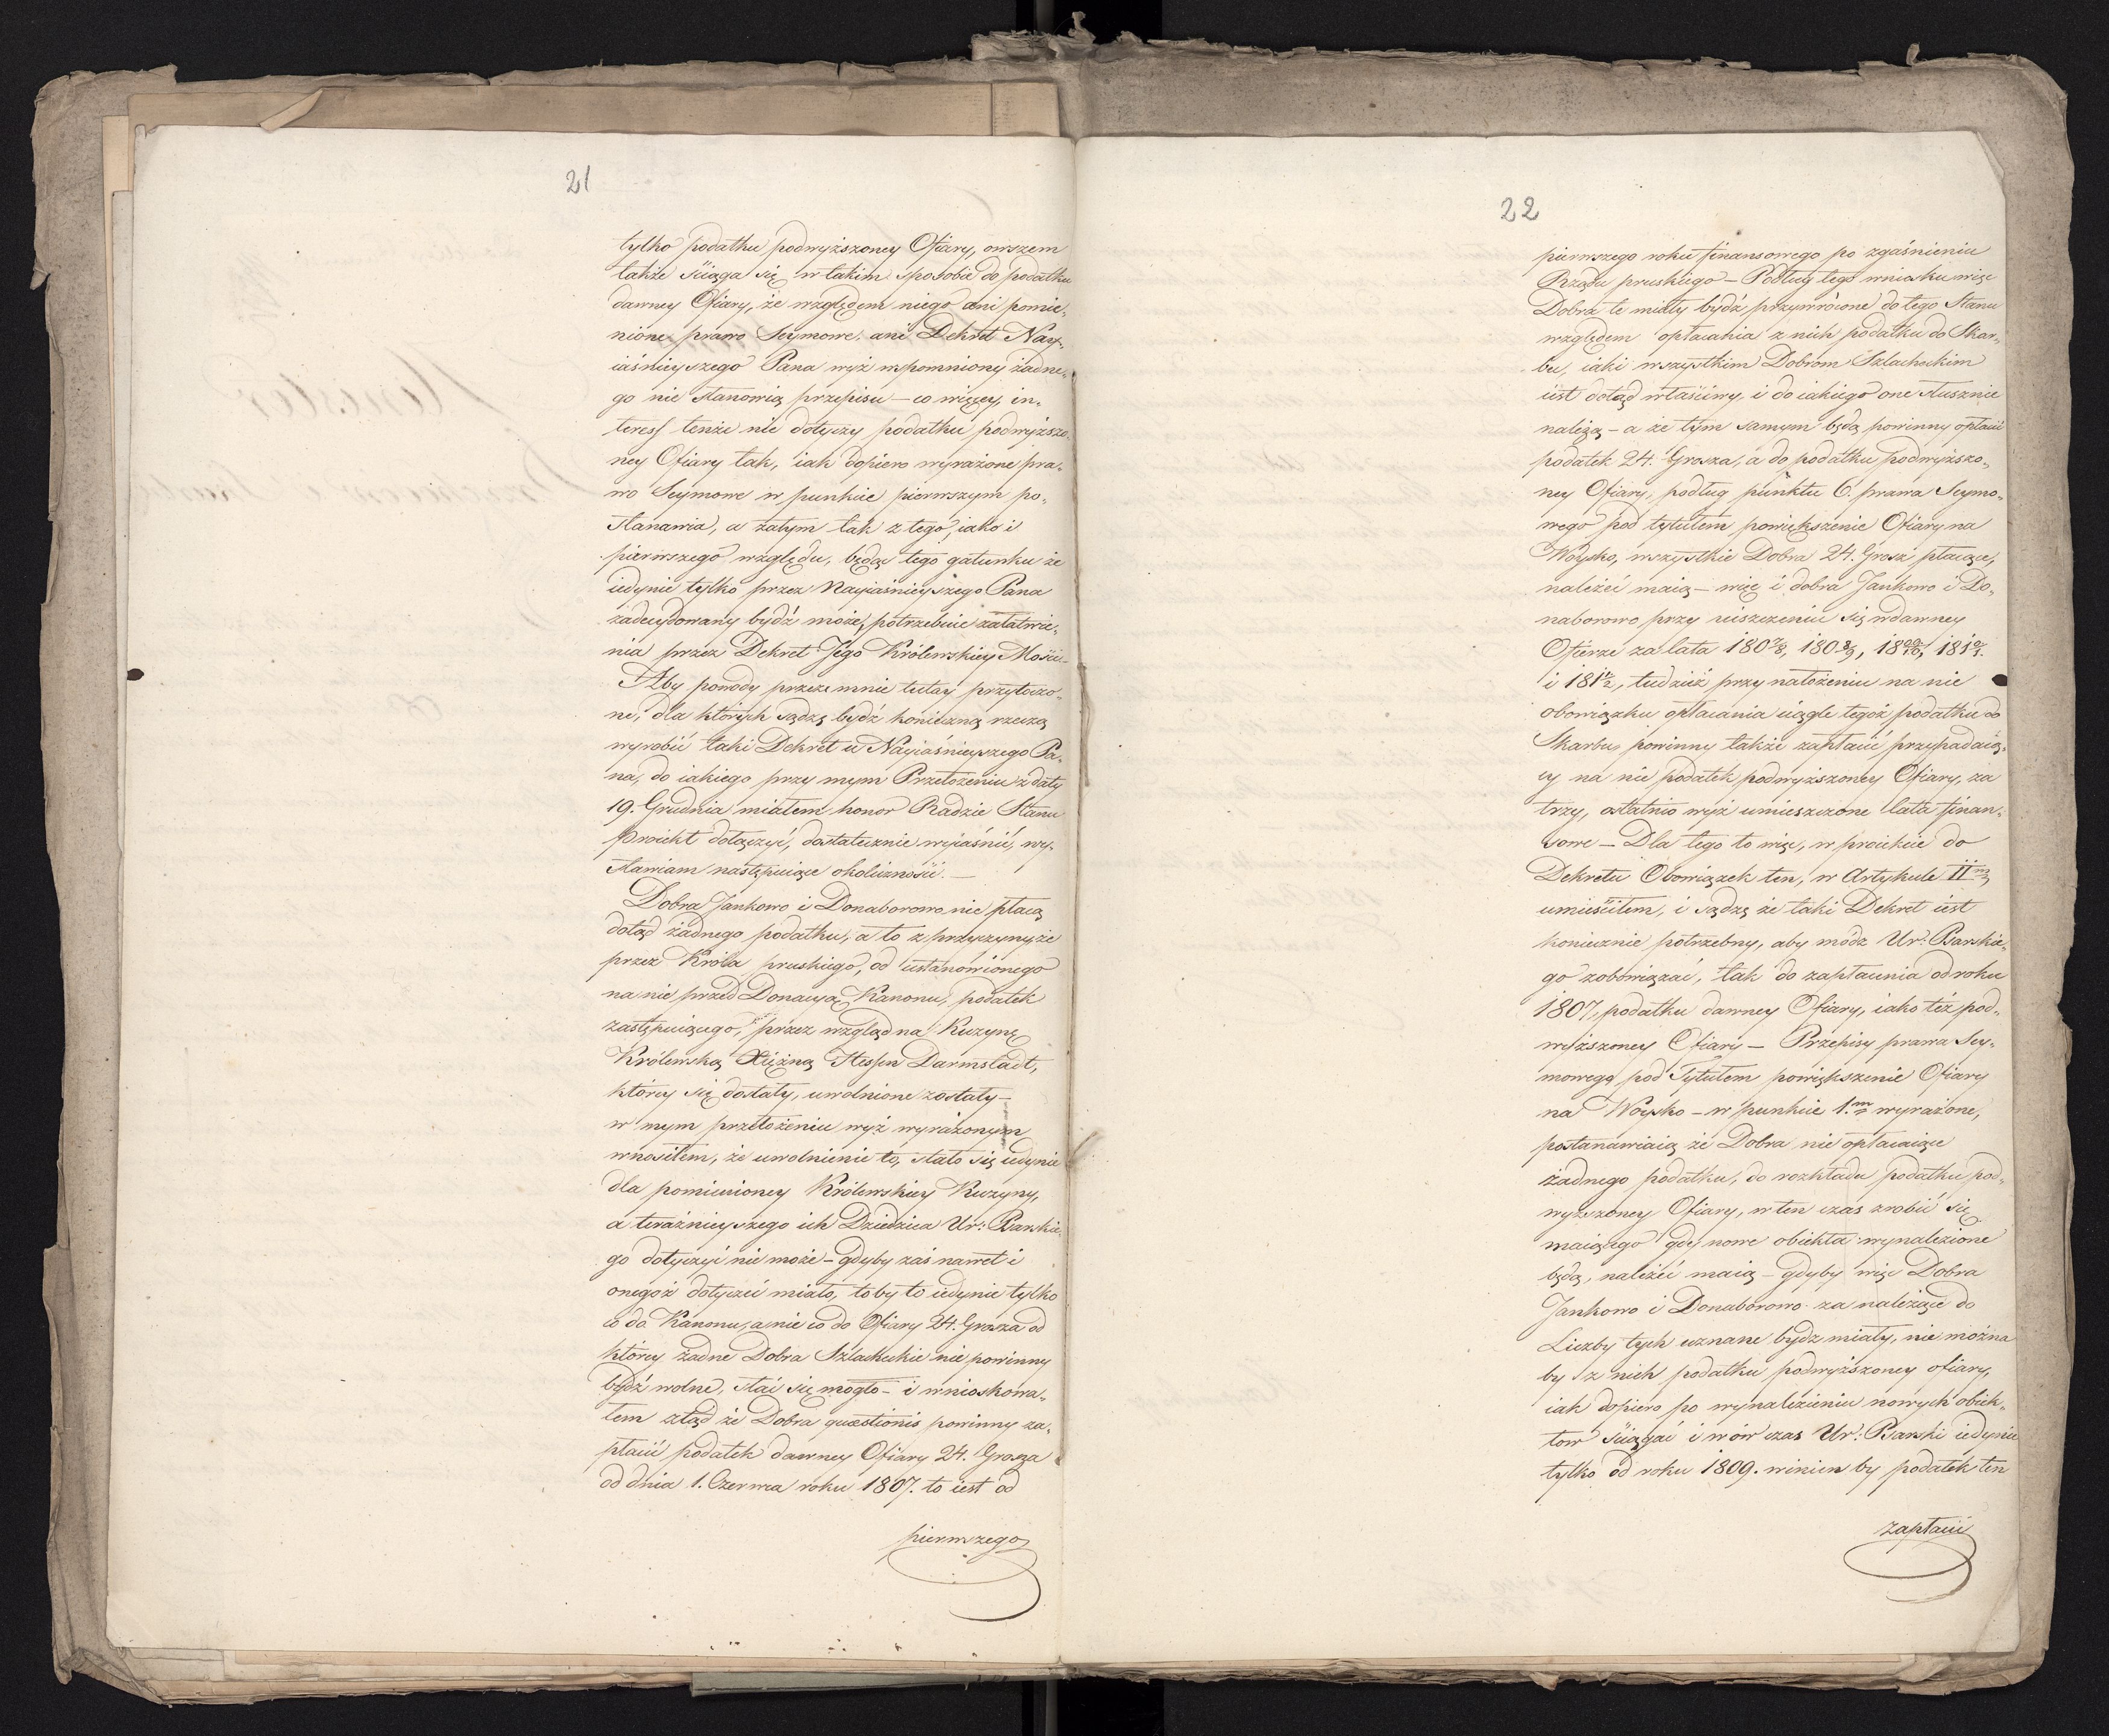 21
tylko podatku podwyższoney Ofiary, owszem
także ściąga się w takim sposobie do podatku
dawney Ofiary, że względem niego ani pomie-
nione prawo Seymowe, ani Dekret Nay-
iaśnieyszego Pana wyż wspomniony żadne-
go nie stanowią przepisu — co więcey, in-
teress tenże nie dotyczy podatku podwyższo-
ney Ofiary tak, iak dopiero wyrażone pra-
wo Seymowe w punkcie pierwszym po-
stanawia, a zatym tak z tego, iako i
pierwszego względu, będąc tego gatunku że
iedynie tylko przez Nayiaśnieyszego Pana
zadecydowany bydź może, potrzebuie załatwie-
nia przez Dekret Jego Królewskiey Mości —
Aby powody przeze mnie tutay przytoczo-
ne, dla których sądzę bydź konieczną rzeczą
wyrobić taki Dekret u Nayiaśnieyszego Pa-
na, do iakiego przy mym Przełożeniu z daty
19. Grudnia miałem honor Radzie Stanu
proiekt dołączyć, dostatecznie wyiaśnić, wy-
stawiam następuiące okoliczności. —
Dobra Jankowo i Donaborowo nie płacą
dotąd żadnego podatku, a to z przyczyny że
przez Króla pruskiego, od ustanowionego
na nie przed Donacyą Kanonu, podatek
zastępuiącego, przez wzgląd na Kuzynę
Królewską Xiężną Hessen Darmstadt,
którey się dostały, uwolnione zostały —
w mym przełożeniu wyż wyrażonym
wnosiłem, że uwolnienie to, stało się iedynie
dla pomienioney Królewskiey Kuzyny,
a teraźnieyszego ich Dziedzica Ur: Barskie-
go dotyczyć nie może — gdyby zaś nawet i
onegoż dotyczeć miało, to by to iedynie tylko
co do Kanonu, a nie co do Ofiary 24. Grosza od
którey żadne Dobra Szlacheckie nie powinny
bydź wolne, stać się mogło — i wnioskowa-
łem ztąd że Dobra quaestionis powinny za-
płacić podatek dawney Ofiary 24. Grosza
od dnia 1. Czerwca roku 1807. to iest od
pierwszego
22
pierwszego roku finansowego po zgaśnieniu
Rządu pruskiego — Podług tego wniosku więc
Dobra te miały bydź przywrócone do tego Stanu
względem opłacania z nich podatku do Skar-
bu, iaki wszystkim Dobrom Szlacheckim
iest dotąd właściwy, i do iakiego one słusznie
należą — a że tym samym będą powinny opłacić
podatek 24. Grosza, a do podatku podwyższo-
ney Ofiary, podług punktu 6. prawa Seymo-
wego pod tytułem powiększenie Ofiary na
Woysko, wszystkie Dobra 24. Grosz płacące,
należeć maią — więc i dobra Jankowo i Do-
naborowo przy uiszczeniu się w dawney
Ofierze za lata 1807/8, 1808/9, 1809/10, 1810/1.
i 1811/2, tudzież przy nałożeniu na nie
obowiązku opłacania ciągle tegoż podatku do
Skarbu, powinny także zapłacić przypadaią-
cy na nie podatek podwyższoney Ofiary, za
trzy, ostatnio wyż umieszczone lata finan-
sowe — Dla tego to więc, w proiekcie do
Dekretu Obowiązek ten, w Artykule II<sup>m</sup>
umieściłem, i sądzę że taki Dekret iest
koniecznie potrzebny, aby módz Ur: Barskie-
go zobowiązać, tak do zapłacenia od roku
1807, podatku dawney Ofiary, iako też pod-
wyższoney Ofiary — Przepisy prawa Sey-
mowego pod Tytułem powiększenie Ofiary
na Woysko — w punkcie 1.<sup>m</sup> wyrażone,
postanawiaią że Dobra nie opłacaiące
żadnego podatku, do rozkładu podatku pod-
wyższoney Ofiary, w ten czas zrobić się
maiącego gdy nowe obiekta wynalezione
będą, należeć maią — gdyby więc Dobra
Jankowo i Donaborowo za należące do
Liczby tych uznane bydz miały, nie można
by z nich podatku podwyższoney ofiary,
iak dopiero po wynalezieniu nowych obiek-
tow ściągać i w ów czas Ur: Barski iedynie
tylko od roku 1809. winien by podatek ten
zapłacić